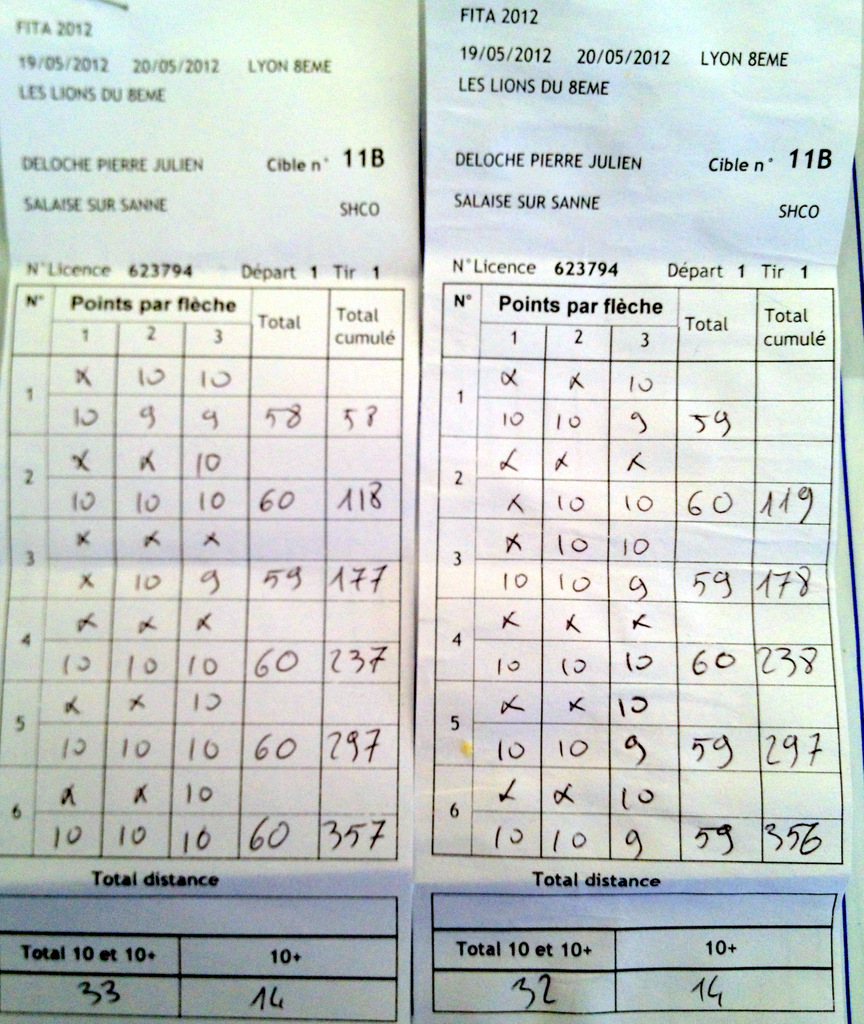 FITA 2012
19/05/2012 20/05/2012 LYON 8EME
LES LIONS DU 8EME
DELOCHE PIERRE JULIEN Cible n° 11B
SALAISE SUR SANNE SHCO
N°Licence 623794 Départ 1 Tir 1
N° Points par flèche Total Total cumulé
1 2 3
1 X 10 10
10 9 9 58 58
2 X X 10
10 10 10 60 118
3 X X X
X 10 9 59 177
4 X X X
10 10 10 60 237
5 X X 10
10 10 10 60 297
6 X X 10
10 10 10 60 357
Total distance
Total 10 et 10+ 10+
33 14
FITA 2012
19/05/2012 20/05/2012 LYON 8EME
LES LIONS DU 8EME
DELOCHE PIERRE JULIEN Cible n° 11B
SALAISE SUR SANNE SHCO
N°Licence 623794 Départ 1 Tir 1
N° Points par flèche Total Total cumulé
1 2 3
1 X X 10
10 10 9 59
2 X X X
X 10 10 60 119
3 X 10 10
10 10 9 59 178
4 X X X
10 10 10 60 238
5 X X 10
10 10 9 59 297
6 X X 10
10 10 9 59 356
Total distance
Total 10 et 10+ 10+
32 14